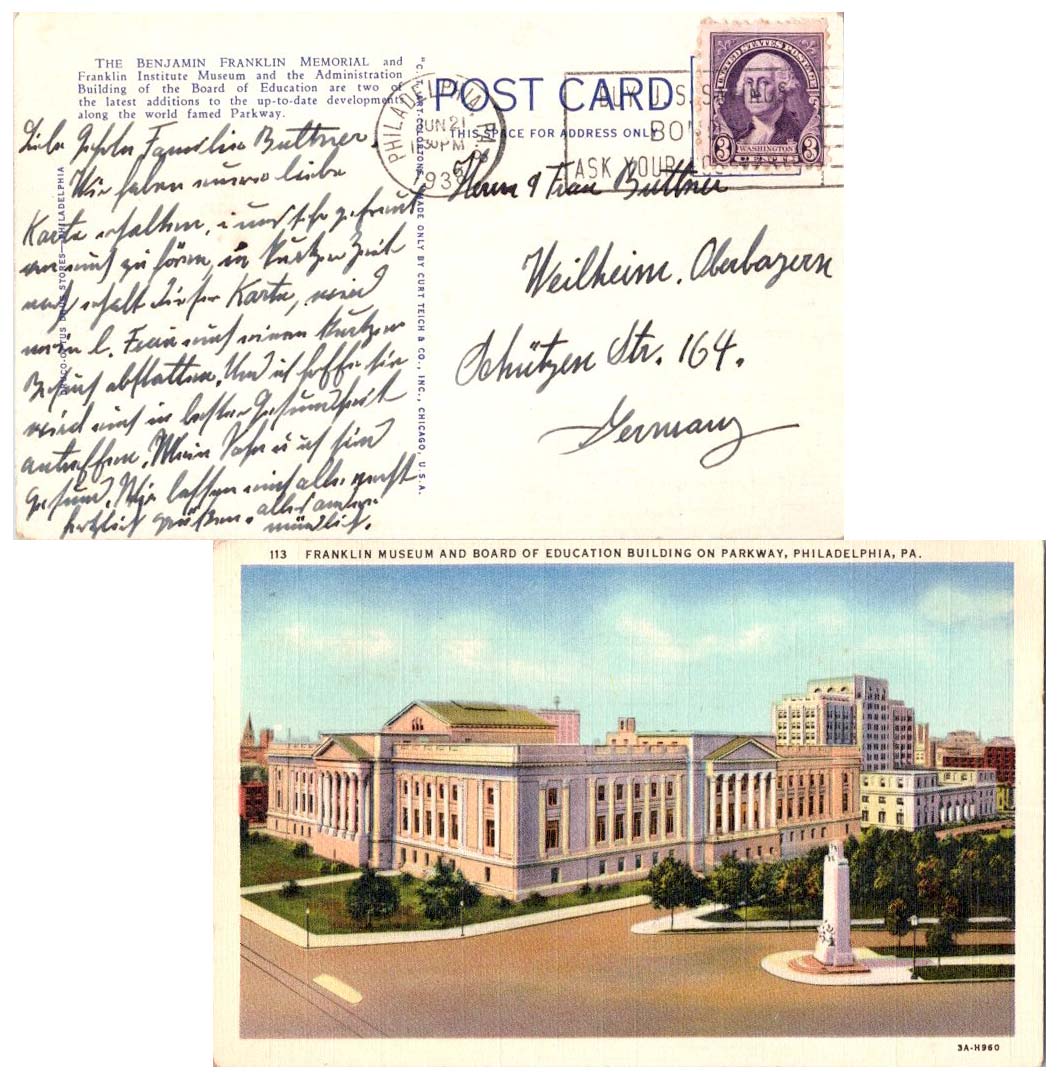 THE BENJAMIN FRANKLIN MEMORIAL and
Franklin Institute Museum and the Administration
Building of the Board of Education are two of
the latest additions to the up-to-date developments
along the world famed Parkway.
POST CARD
THIS SPACE FOR ADDRESS ONLY
PHILADELPHIA, PA.
JUN 21
30 PM
1938
BUY U.S. SAVINGS
BONDS
ASK YOUR
UNITED STATES POSTAGE
3 WASHINGTON 3
CENTS
Liebe Familie Buttner.
Wir haben unsere liebe
Karte erhalten, und sehr gefreut
von euch zu hören, in kurtzer Zeit
nach erhalt dieser Karte, wird
meine l. Frau euch einen kurtzen
Besuch abstatten. Und ich hoffe sie
wird euch in bester Gesundheit
antreffen. Mein Sohn u ich sind
gesund. Wir lassen euch alle recht
hertzlich grüßen. alles andere
mündlich.
Herrn & Frau Buttner
Weilheim, Oberbayern
Schützen Str. 164.
Germany
DRUG STORES—PHILADELPHIA
"C.T. ART-COLORTONE" MADE ONLY BY CURT TEICH & CO., INC., CHICAGO, U.S.A.
113 FRANKLIN MUSEUM AND BOARD OF EDUCATION BUILDING ON PARKWAY, PHILADELPHIA, PA.
3A-H960